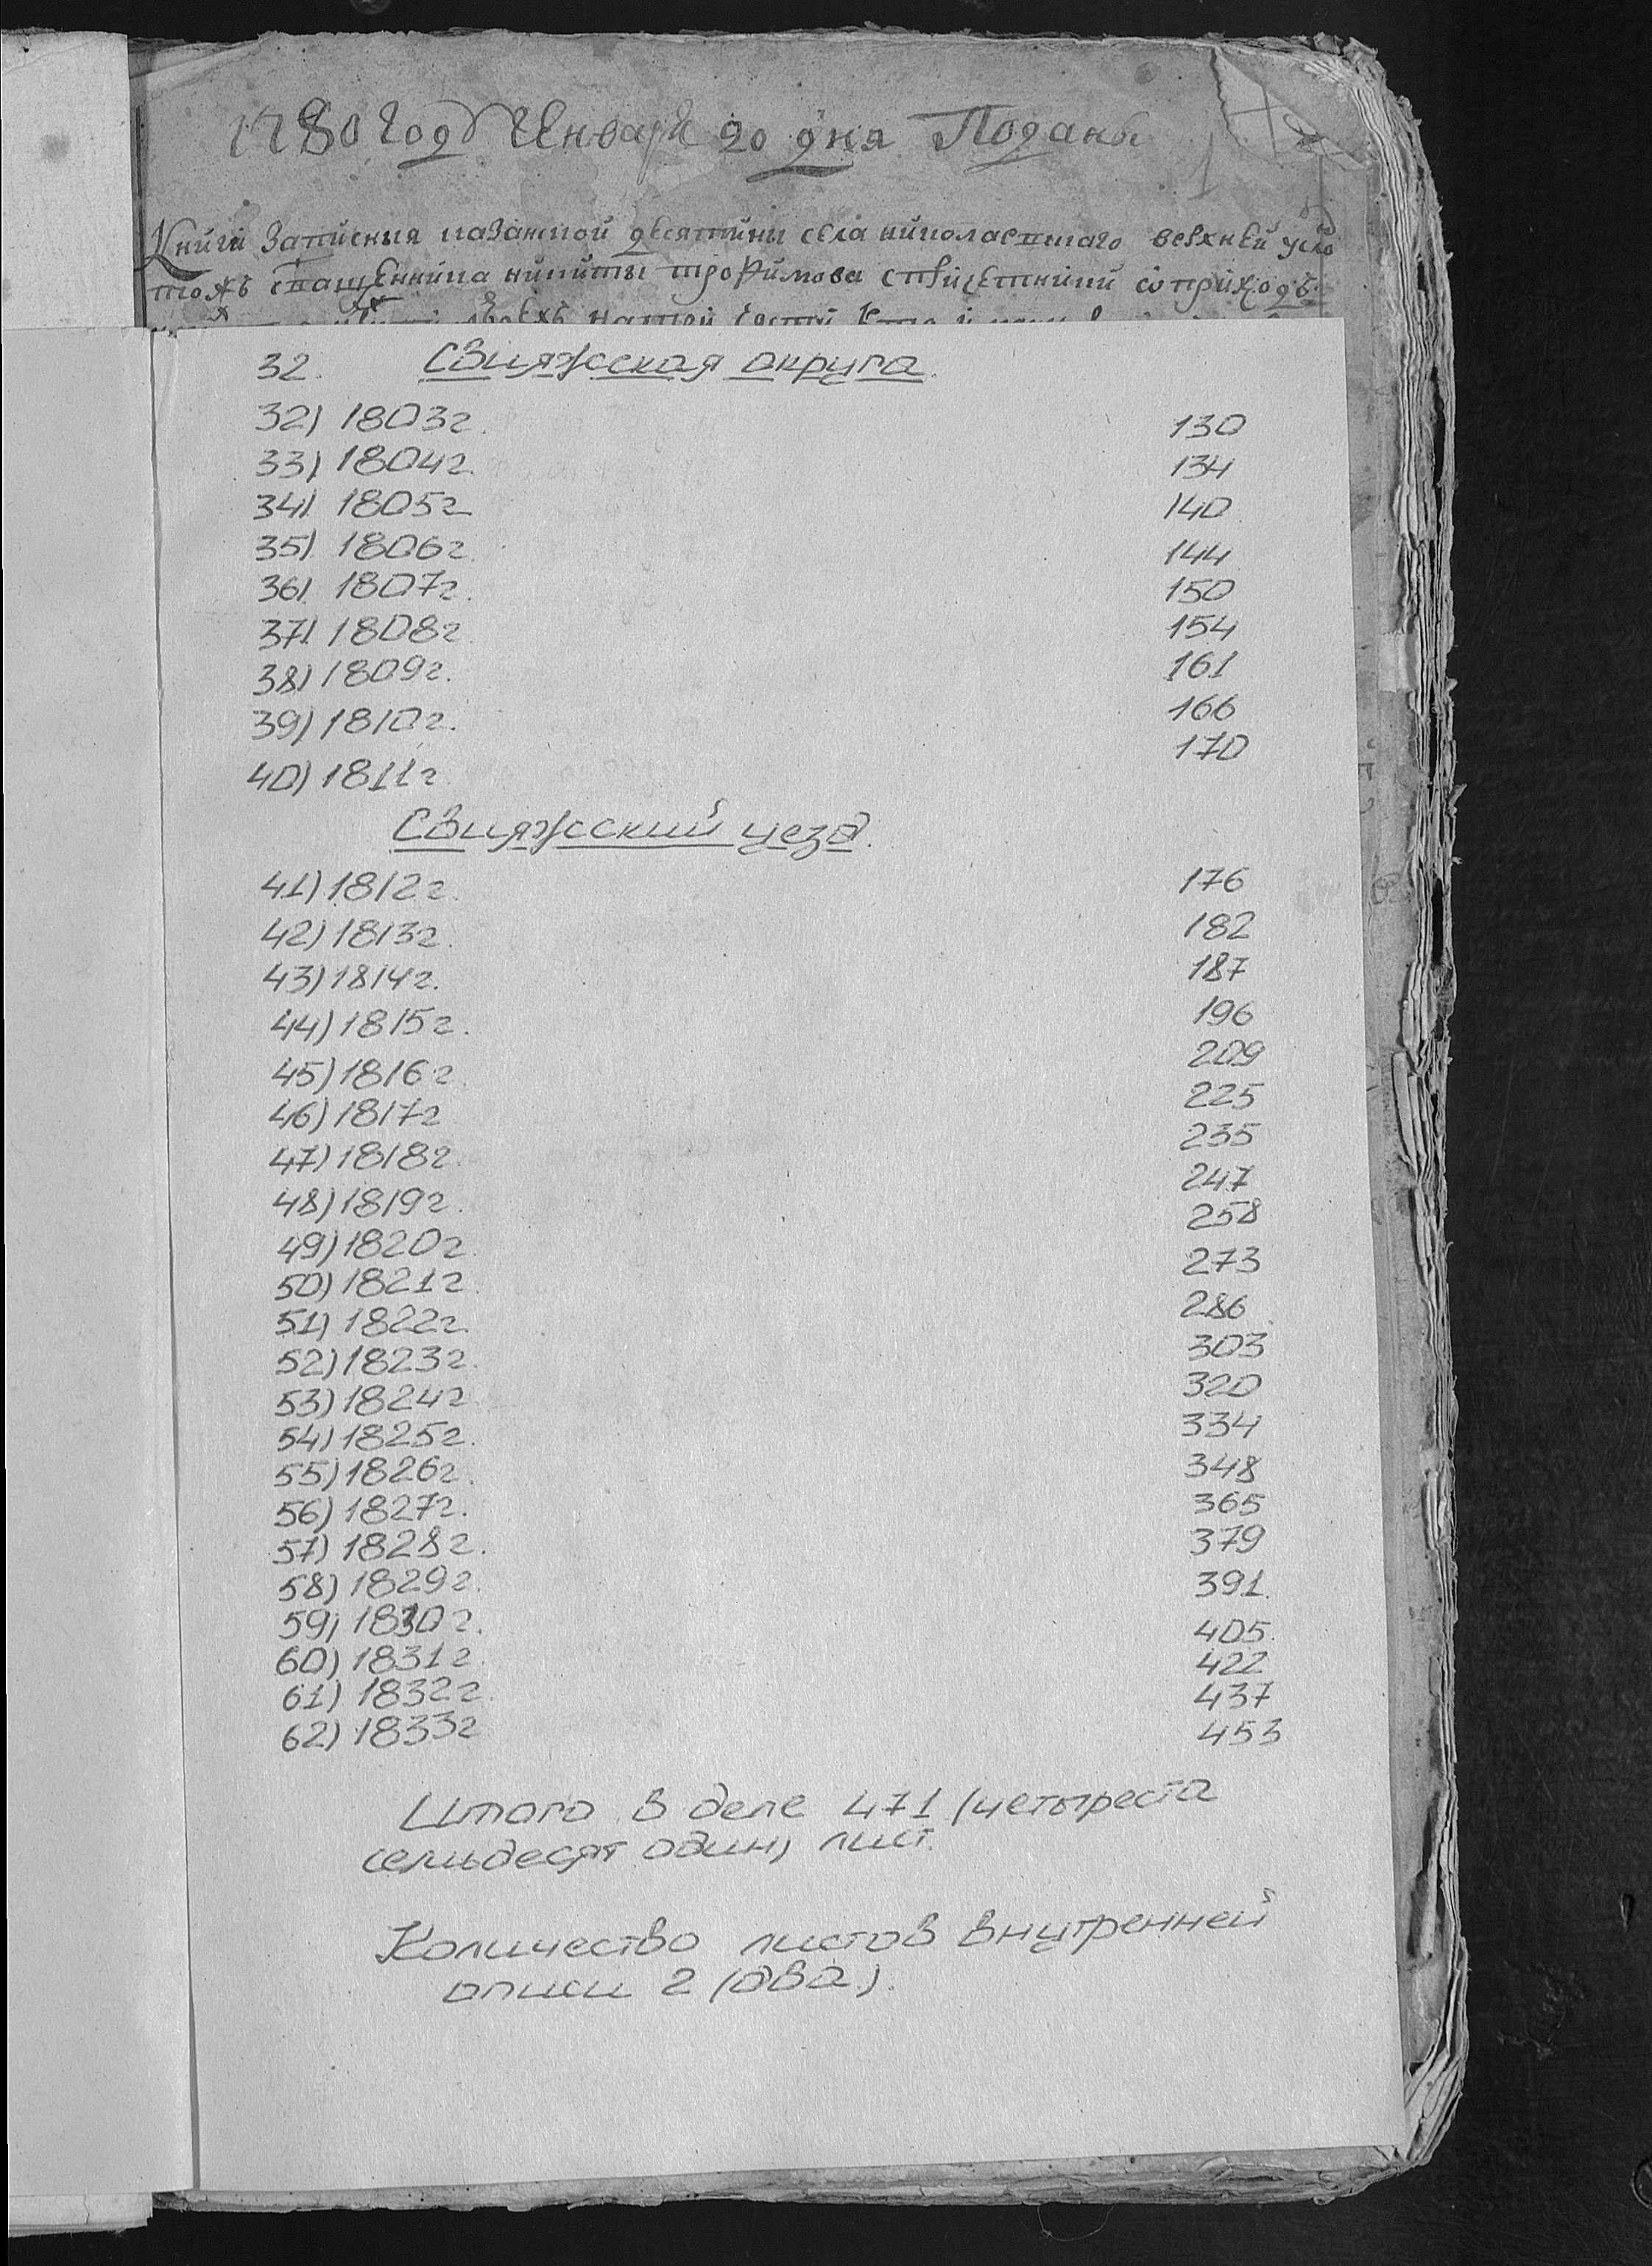 1780 году Января 20 дня Поданы
1
Книги Записныя казанской десятины села николаевского верхней усло
тожъ священника никиты трофимова с причетники о приході
32. Свияжская округа.
32) 1803г. 130
33) 1804г. 134
34) 1805г 140
35) 1806г. 144
36) 1807г. 150
37) 1808г 154
38) 1809г. 161
39) 1810г. 166
40) 1811г 170
Свияжский уезд.
41) 1812г. 176
42) 1813г. 182
43) 1814г. 187
44) 1815г. 196
45) 1816г 209
46) 1817г 225
47) 1818г. 235
48) 1819г. 247
49) 1820г. 258
50) 1821г 273
51) 1822г. 286
52) 1823г. 303
53) 1824г 320
54) 1825г. 334
55) 1826г. 348
56) 1827г. 365
57) 1828г. 379
58) 1829г. 391
59) 1830г. 405
60) 1831г. 422
61) 1832г. 437
62) 1833г 453
Итого в деле 471 (четыреста
семьдесят один) лист.
Количество листов внутренней
описи 2 (два).